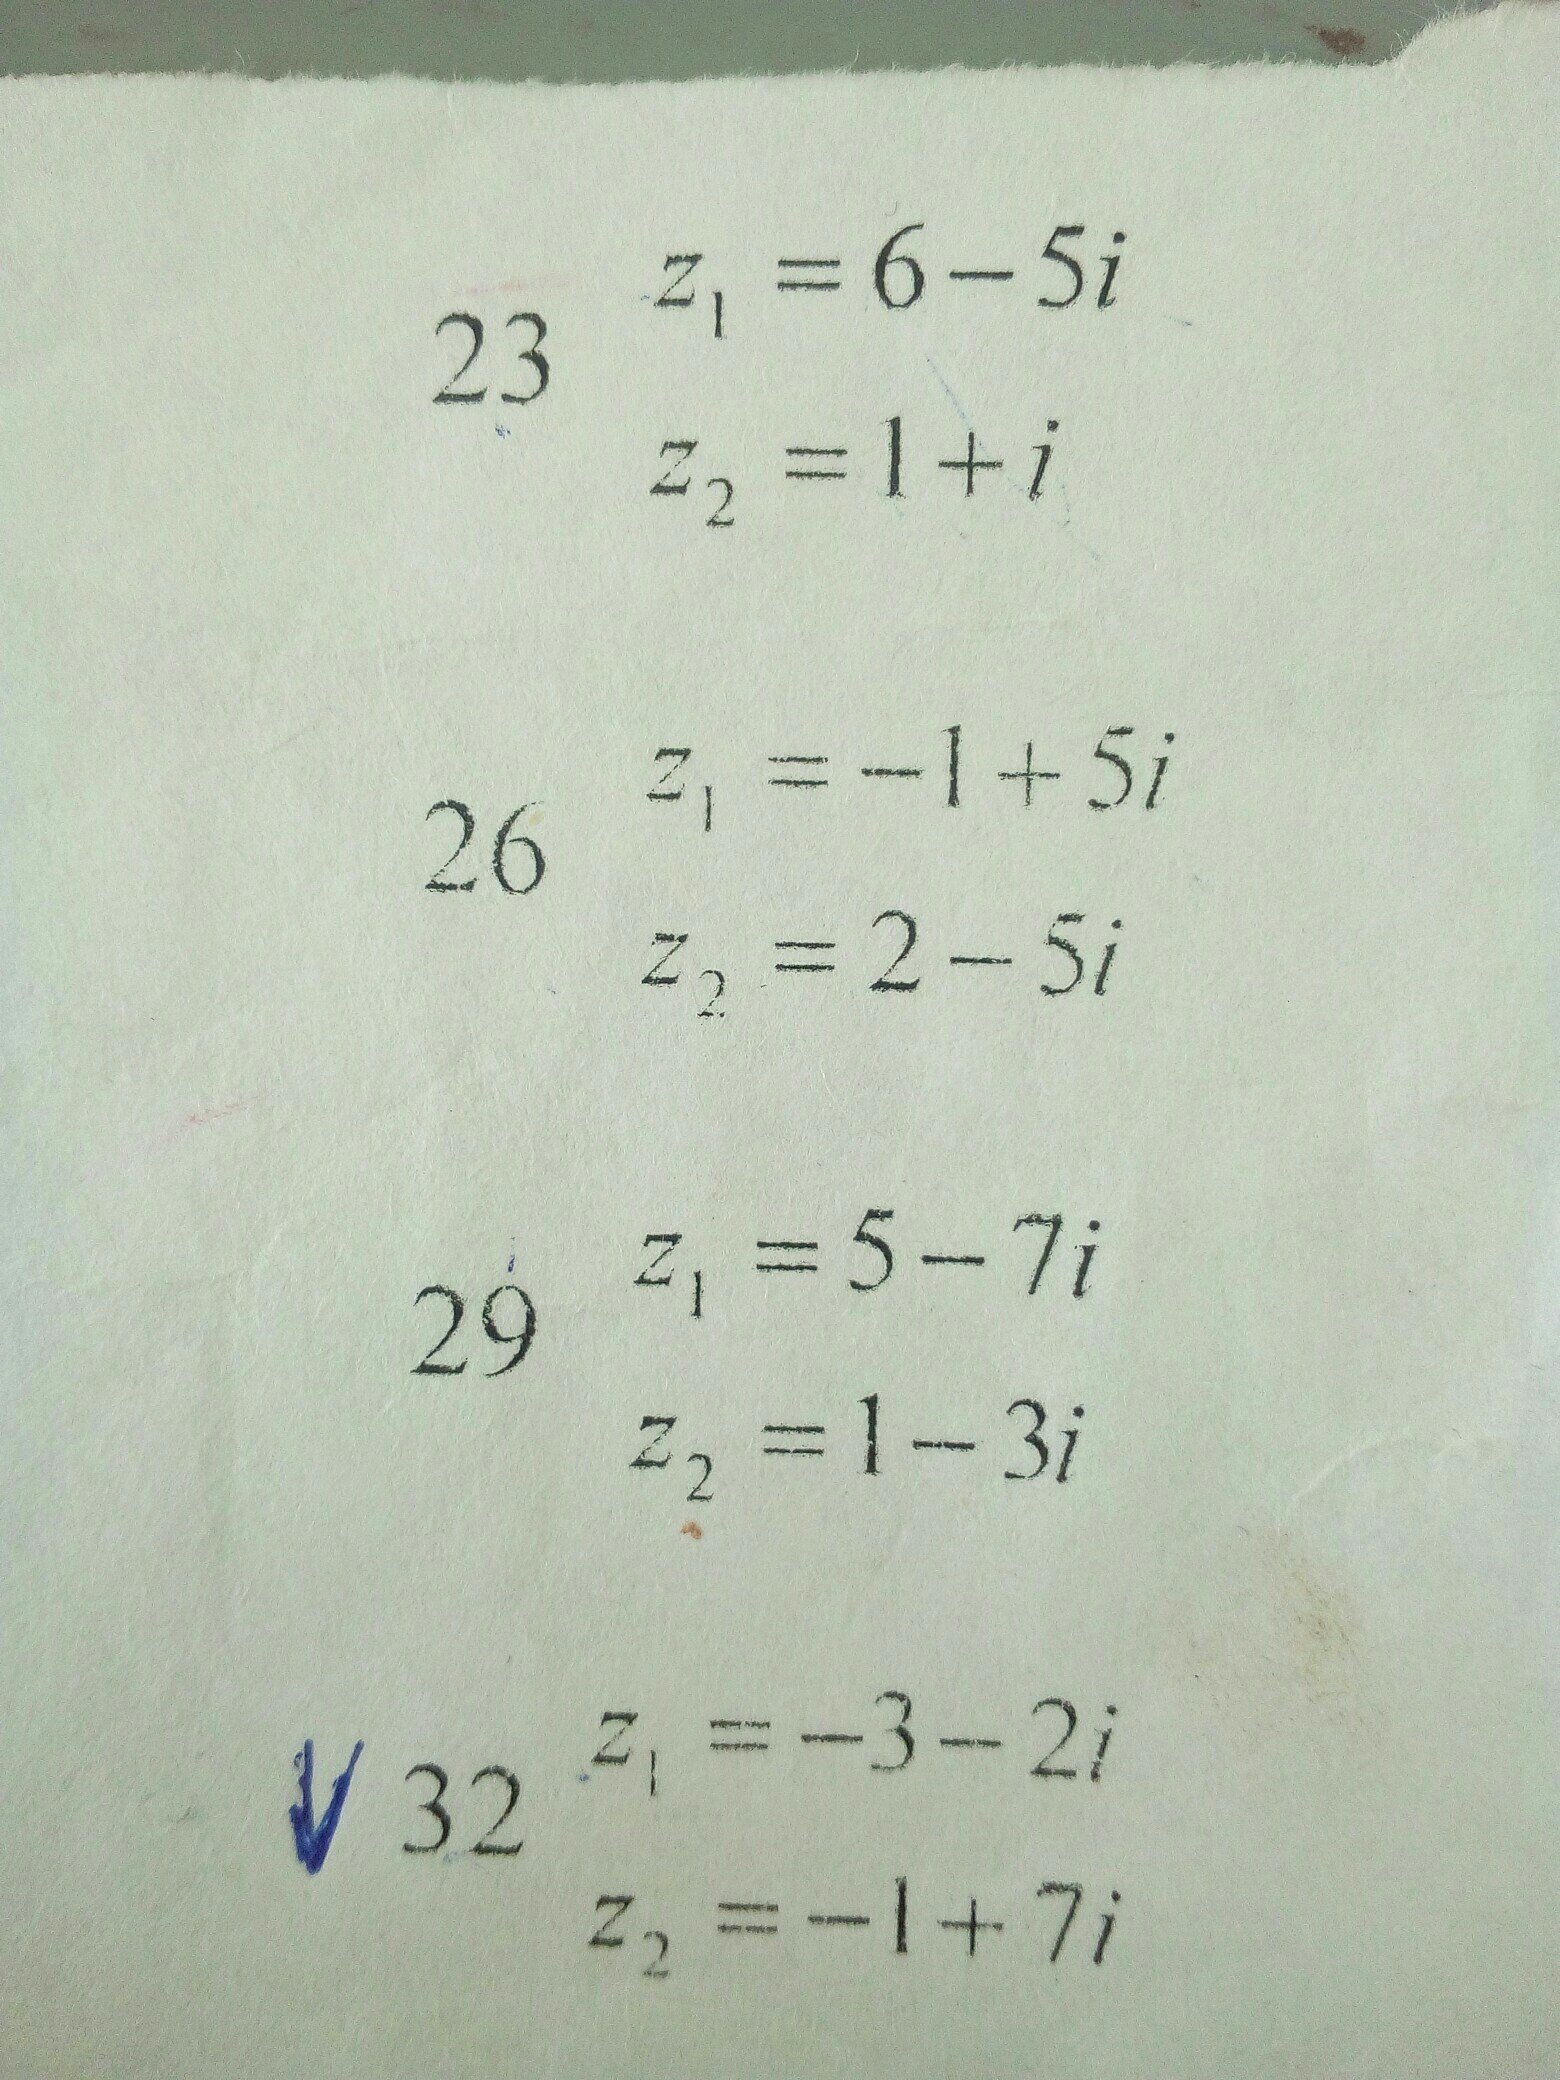 23 z₁ = 6 − 5i
z₂ = 1 + i
26 z₁ = −1 + 5i
z₂ = 2 − 5i
29 z₁ = 5 − 7i
z₂ = 1 − 3i
32 z₁ = −3 − 2i
z₂ = −1 + 7i